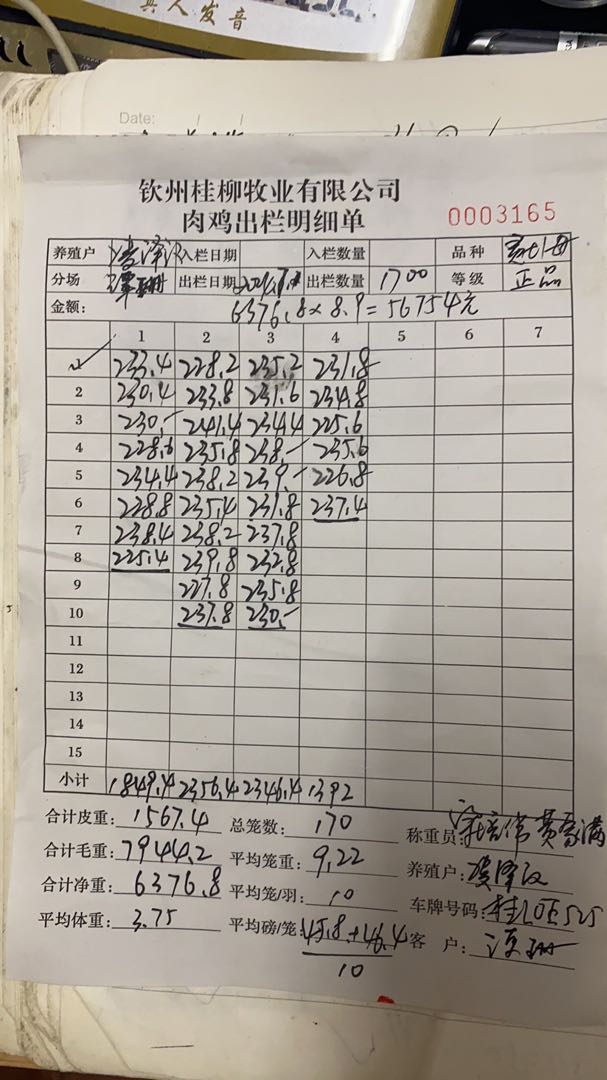 真人发音
Date: / /
钦州桂柳牧业有限公司
肉鸡出栏明细单 0003165
养殖户 凌泽汉 入栏日期 入栏数量 品种
分场 谭珊 出栏日期 出栏数量 1700 等级 正品
金额: 6376.8×8.9=56754元
1 2 3 4 5 6 7
1 233.4 228.2 235.2 231.8
2 230.4 233.8 231.6 234.8
3 230.- 241.4 234.4 225.6
4 228.6 235.8 238.- 235.6
5 234.4 238.2 239.- 226.8
6 228.8 235.4 231.8 237.4
7 238.4 238.2 237.8
8 225.4 239.8 232.8
9 227.8 235.8
10 237.8 230.-
11
12
13
14
15
小计 1849.4 2356.4 2346.4 1392
合计皮重: 1567.4 总笼数: 170 称重员:
合计毛重: 7944.2 平均笼重: 9.22 养殖户: 凌泽汉
合计净重: 6376.8 平均笼/羽: 10 车牌号码:
平均体重: 3.75 平均磅/笼: 45.8+46.4 客户: 谭珊
10